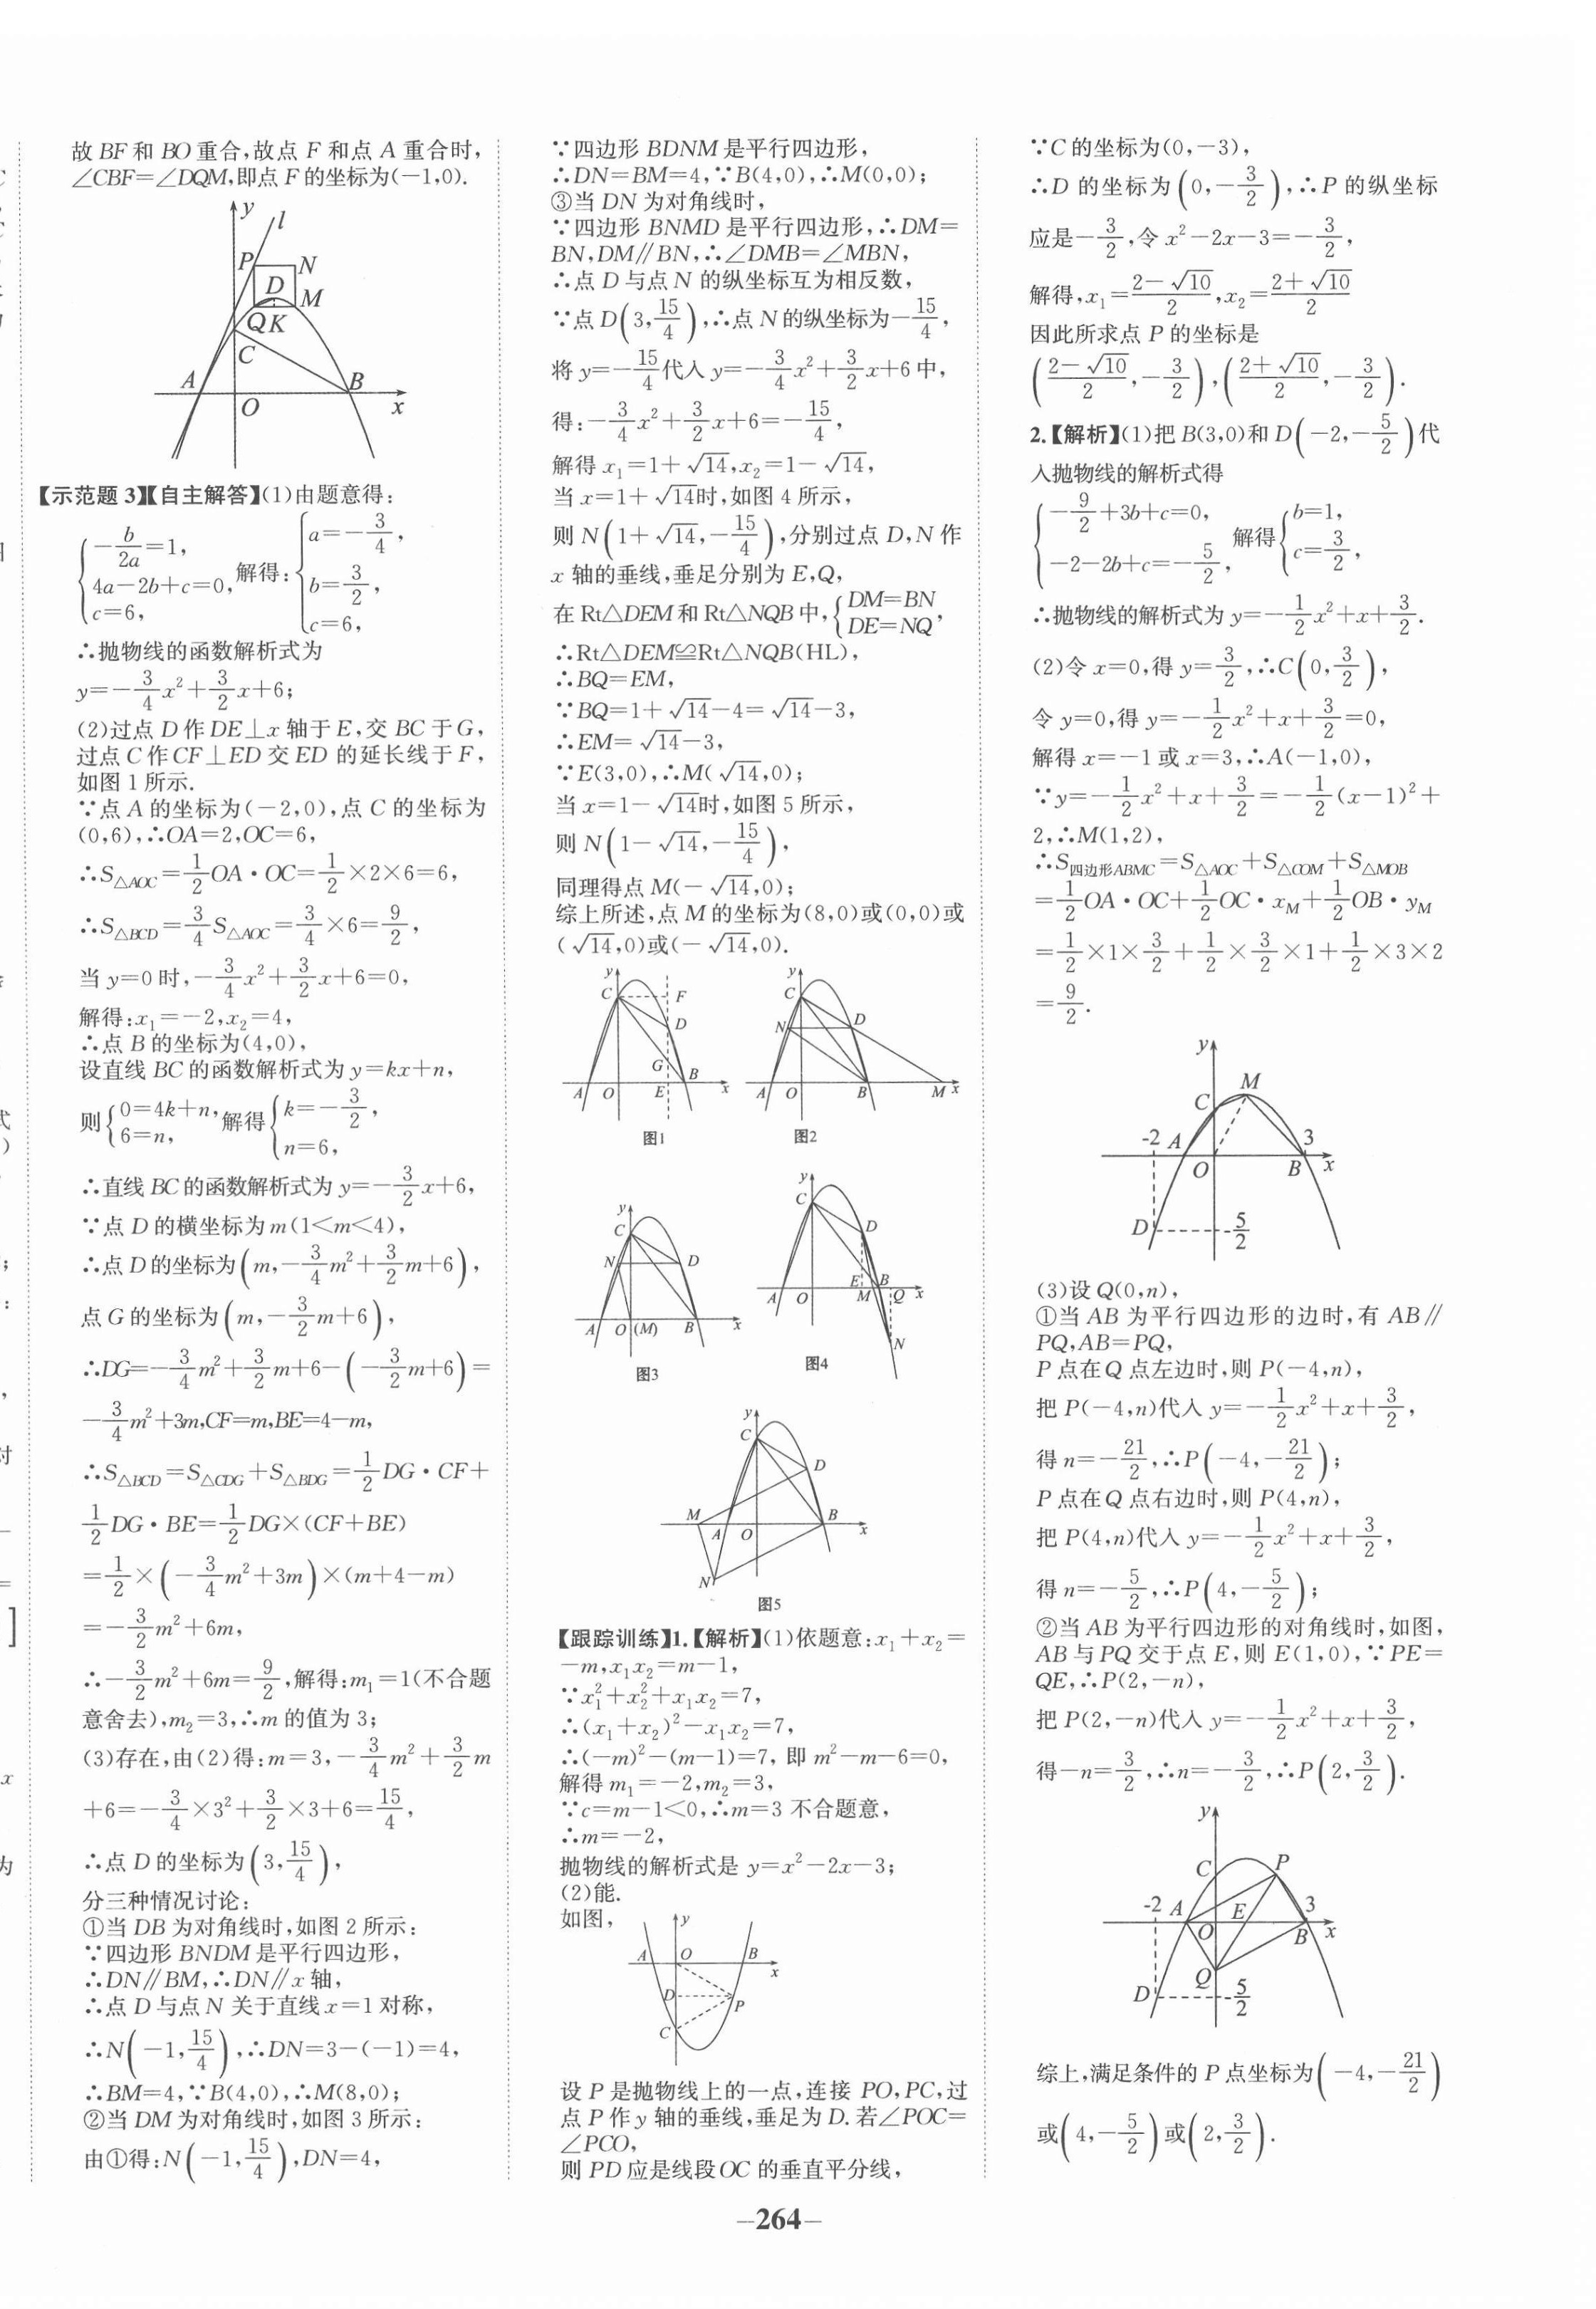 故BF和BO重合,故点F和点A重合时,
∠CBF=∠DQM,即点F的坐标为(-1,0).
y
l
P
N
D
M
Q K
C
A
B
O
x
【示范题3】【自主解答】(1)由题意得:
{-b/2a=1, 4a-2b+c=0, c=6, 解得:{a=-3/4, b=3/2, c=6,
∴抛物线的函数解析式为
y=-3/4x²+3/2x+6;
(2)过点D作DE⊥x轴于E,交BC于G,
过点C作CF⊥ED交ED的延长线于F,
如图1所示.
∵点A的坐标为(-2,0),点C的坐标为
(0,6),∴OA=2,OC=6,
∴S△AOC=1/2OA·OC=1/2×2×6=6,
∴S△BCD=3/4S△AOC=3/4×6=9/2,
当y=0时,-3/4x²+3/2x+6=0,
解得:x₁=-2,x₂=4,
∴点B的坐标为(4,0),
设直线BC的函数解析式为y=kx+n,
则{0=4k+n, 6=n, 解得{k=-3/2, n=6,
∴直线BC的函数解析式为y=-3/2x+6,
∵点D的横坐标为m(1<m<4),
∴点D的坐标为(m,-3/4m²+3/2m+6),
点G的坐标为(m,-3/2m+6),
∴DG=-3/4m²+3/2m+6-(-3/2m+6)=
-3/4m²+3m,CF=m,BE=4-m,
∴S△BCD=S△CDG+S△BDG=1/2DG·CF+
1/2DG·BE=1/2DG×(CF+BE)
=1/2×(-3/4m²+3m)×(m+4-m)
=-3/2m²+6m,
∴-3/2m²+6m=9/2,解得:m₁=1(不合题
意舍去),m₂=3,∴m的值为3;
(3)存在,由(2)得:m=3,-3/4m²+3/2m
+6=-3/4×3²+3/2×3+6=15/4,
∴点D的坐标为(3,15/4),
分三种情况讨论:
①当DB为对角线时,如图2所示:
∵四边形BNDM是平行四边形,
∴DN∥BM,∴DN∥x轴,
∴点D与点N关于直线x=1对称,
∴N(-1,15/4),∴DN=3-(-1)=4,
∴BM=4,∵B(4,0),∴M(8,0);
②当DM为对角线时,如图3所示:
由①得:N(-1,15/4),DN=4,
∵四边形BDNM是平行四边形,
∴DN=BM=4,∵B(4,0),∴M(0,0);
③当DN为对角线时,
∵四边形BNMD是平行四边形,∴DM=
BN,DM∥BN,∴∠DMB=∠MBN,
∴点D与点N的纵坐标互为相反数,
∵点D(3,15/4),∴点N的纵坐标为-15/4,
将y=-15/4代入y=-3/4x²+3/2x+6中,
得:-3/4x²+3/2x+6=-15/4,
解得x₁=1+√14,x₂=1-√14,
当x=1+√14时,如图4所示,
则N(1+√14,-15/4),分别过点D,N作
x轴的垂线,垂足分别为E,Q,
在Rt△DEM和Rt△NQB中,{DM=BN DE=NQ,
∴Rt△DEM≌Rt△NQB(HL),
∴BQ=EM,
∵BQ=1+√14-4=√14-3,
∴EM=√14-3,
∵E(3,0),∴M(√14,0);
当x=1-√14时,如图5所示,
则N(1-√14,-15/4),
同理得点M(-√14,0);
综上所述,点M的坐标为(8,0)或(0,0)或
(√14,0)或(-√14,0).
y C F D G B A O E x
图1
y C N D A O B M x
图2
y C N D A O (M) B x
图3
y C D E B A O M Q x N
图4
y C D M A O B x N
图5
【跟踪训练】1.【解析】(1)依题意:x₁+x₂=
-m,x₁x₂=m-1,
∵x₁²+x₂²+x₁x₂=7,
∴(x₁+x₂)²-x₁x₂=7,
∴(-m)²-(m-1)=7,即m²-m-6=0,
解得m₁=-2,m₂=3,
∵c=m-1<0,∴m=3不合题意,
∴m=-2,
抛物线的解析式是y=x²-2x-3;
(2)能.
如图,
y A O B x D P C
设P是抛物线上的一点,连接PO,PC,过
点P作y轴的垂线,垂足为D.若∠POC=
∠PCO,
则PD应是线段OC的垂直平分线,
∵C的坐标为(0,-3),
∴D的坐标为(0,-3/2),∴P的纵坐标
应是-3/2,令x²-2x-3=-3/2,
解得,x₁=(2-√10)/2,x₂=(2+√10)/2
因此所求点P的坐标是
((2-√10)/2,-3/2),((2+√10)/2,-3/2).
2.【解析】(1)把B(3,0)和D(-2,-5/2)代
入抛物线的解析式得
{-9/2+3b+c=0, -2-2b+c=-5/2, 解得{b=1, c=3/2,
∴抛物线的解析式为y=-1/2x²+x+3/2.
(2)令x=0,得y=3/2,∴C(0,3/2),
令y=0,得y=-1/2x²+x+3/2=0,
解得x=-1或x=3,∴A(-1,0),
∵y=-1/2x²+x+3/2=-1/2(x-1)²+
2,∴M(1,2),
∴S四边形ABMC=S△AOC+S△COM+S△MOB
=1/2OA·OC+1/2OC·xM+1/2OB·yM
=1/2×1×3/2+1/2×3/2×1+1/2×3×2
=9/2.
y M C -2 A 3 O B x D -5/2
(3)设Q(0,n),
①当AB为平行四边形的边时,有AB∥
PQ,AB=PQ,
P点在Q点左边时,则P(-4,n),
把P(-4,n)代入y=-1/2x²+x+3/2,
得n=-21/2,∴P(-4,-21/2);
P点在Q点右边时,则P(4,n),
把P(4,n)代入y=-1/2x²+x+3/2,
得n=-5/2,∴P(4,-5/2);
②当AB为平行四边形的对角线时,如图,
AB与PQ交于点E,则E(1,0),∵PE=
QE,∴P(2,-n),
把P(2,-n)代入y=-1/2x²+x+3/2,
得-n=3/2,∴n=-3/2,∴P(2,3/2).
y C P -2 A E 3 O B x Q D -5/2
综上,满足条件的P点坐标为(-4,-21/2)
或(4,-5/2)或(2,3/2).
-264-